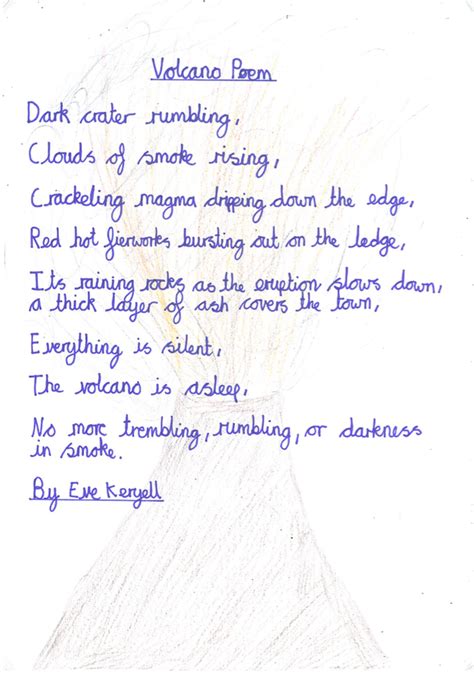 Volcano Poem
Dark crater rumbling,
Clouds of smoke rising,
Crackeling magma dripping down the edge,
Red hot fierworks bursting out on the ledge,
Its raining rocks as the eruption slows down,
a thick layer of ash covers the town,
Everything is silent,
The volcano is asleep,
No more trembling, rumbling, or darkness
in smoke.
By Eve Keryell